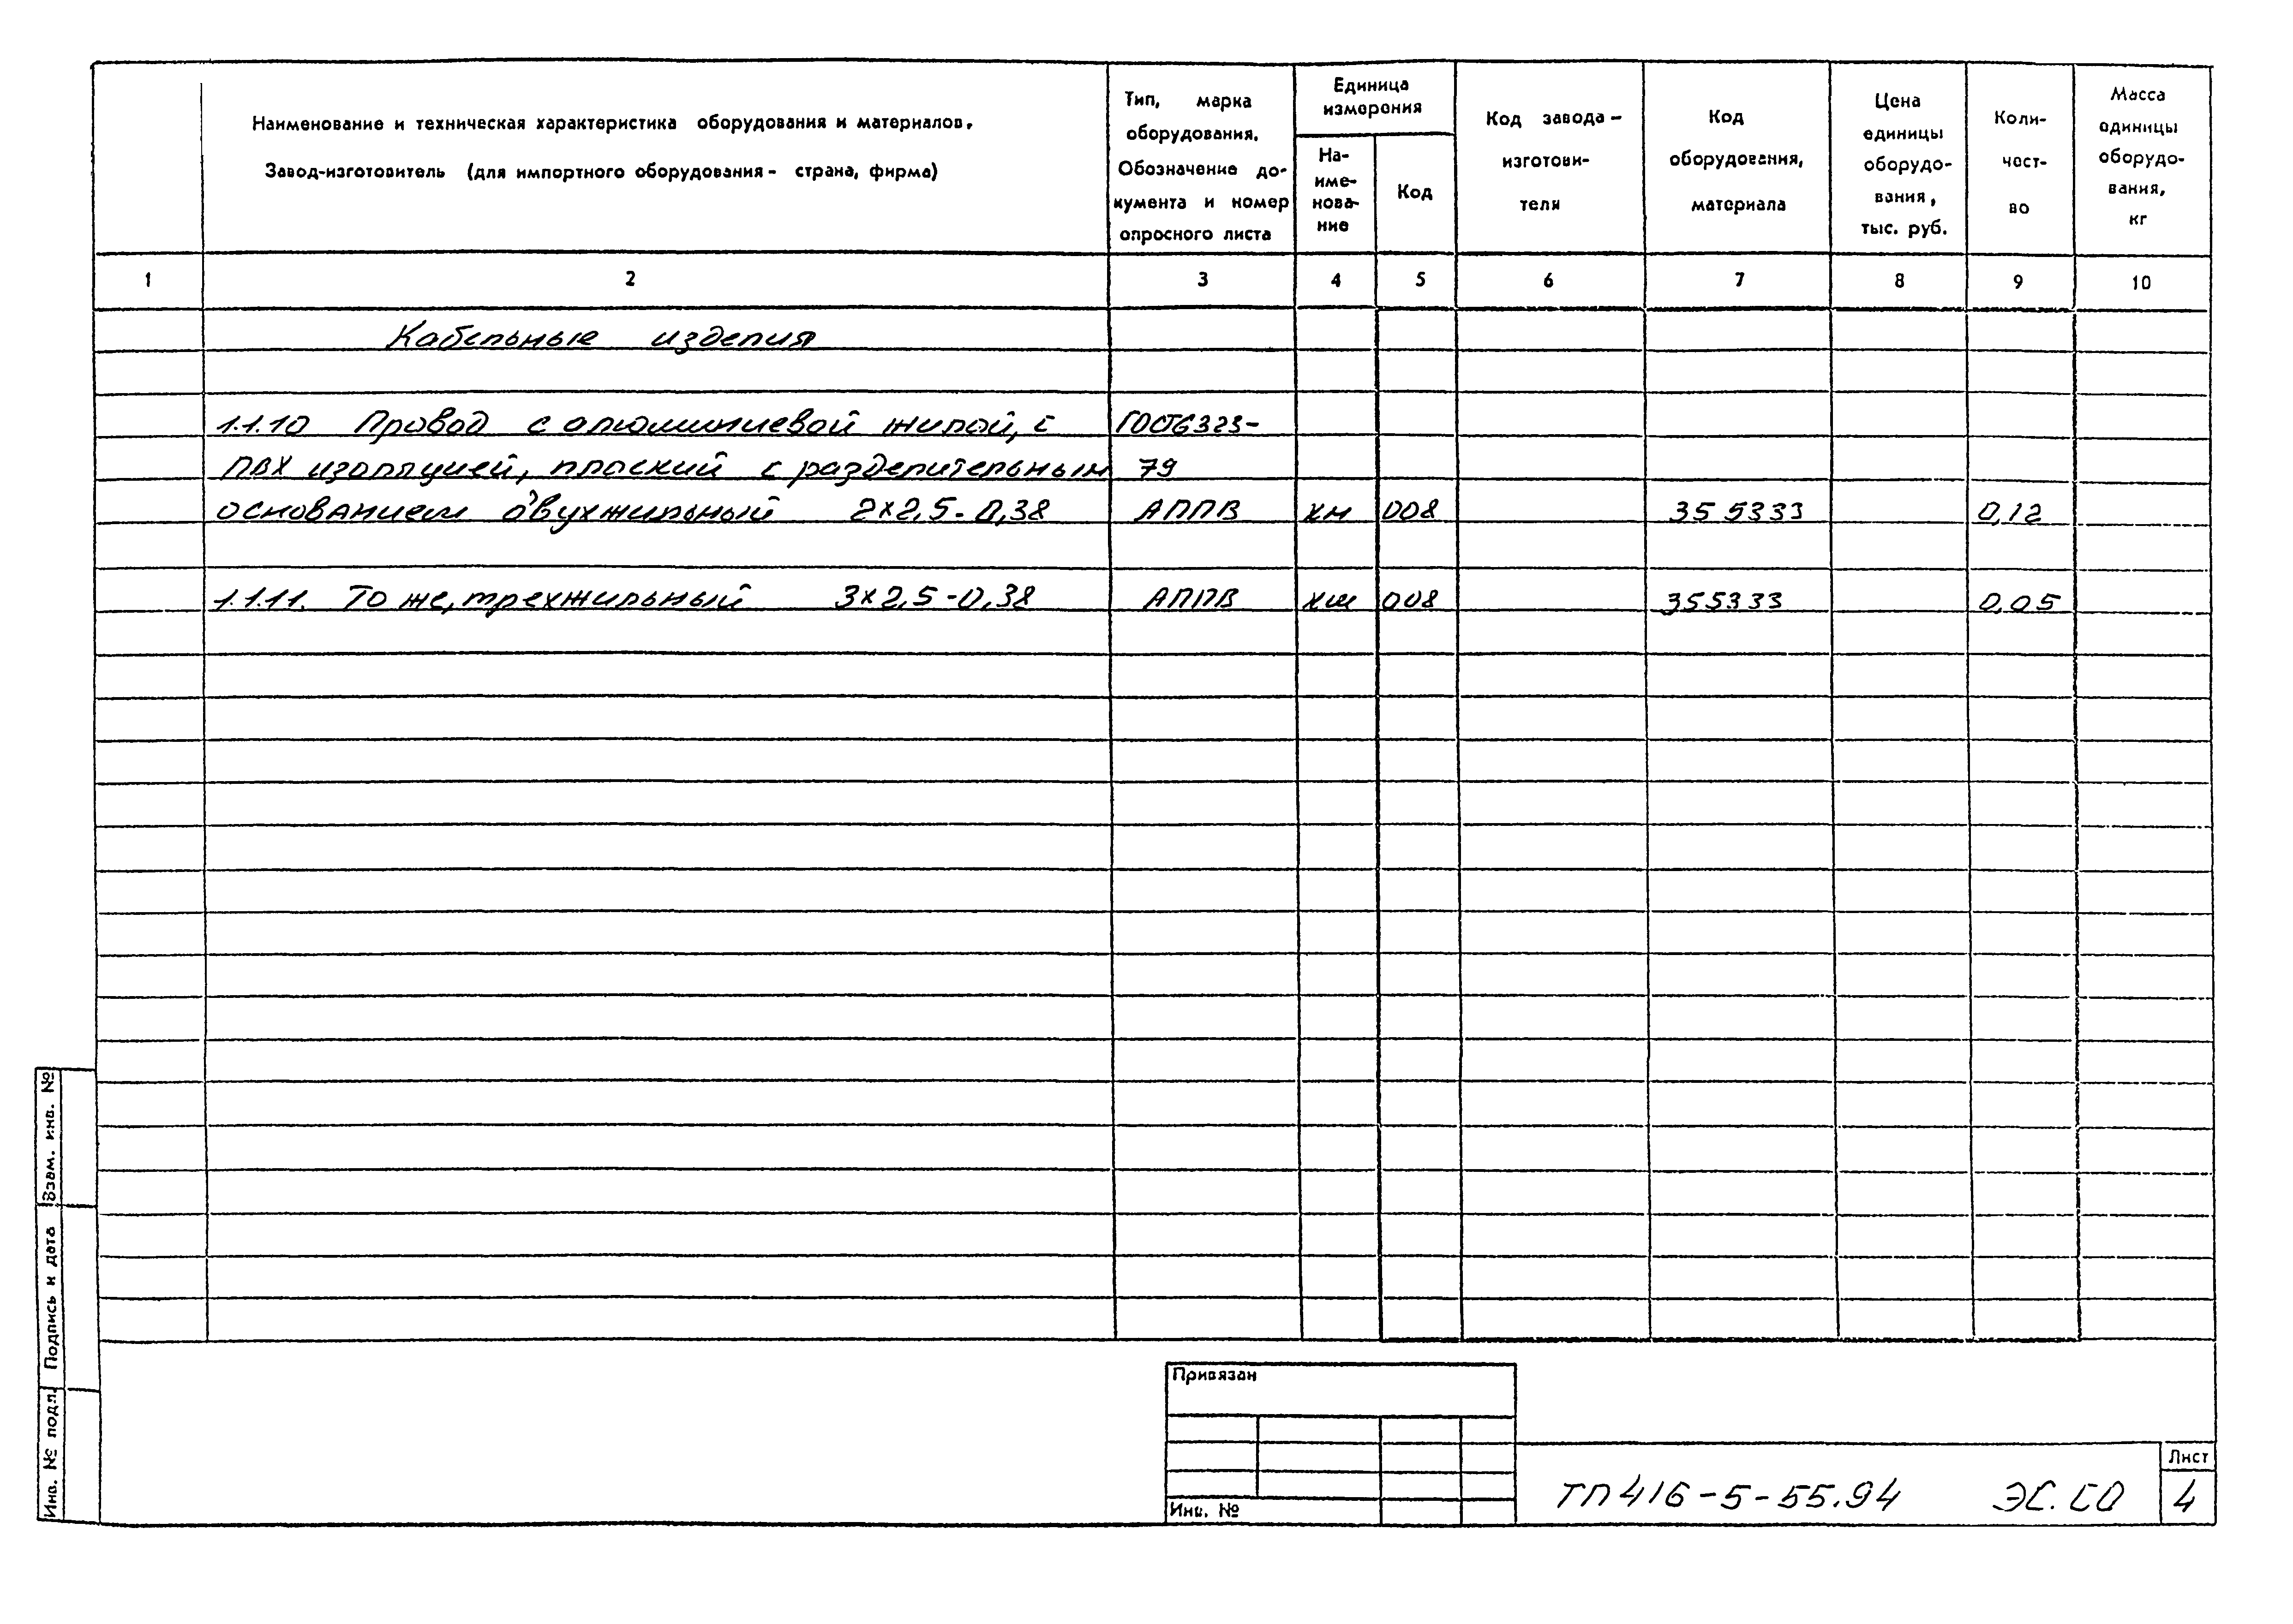 Наименование и техническая характеристика оборудования и материалов,
Завод-изготовитель (для импортного оборудования - страна, фирма)
Тип, марка
оборудования.
Обозначение до-
кумента и номер
опросного листа
Единица
измерения
На-
име-
нова-
ние
Код
Код завода –
изготови-
теля
Код
оборудования,
материала
Цена
единицы
оборудо-
вания,
тыс. руб.
Коли-
чест-
во
Масса
единицы
оборудо-
вания,
кг
1 2 3 4 5 6 7 8 9 10
Кабельные изделия
1.1.10 Провод с алюминиевой жилой, с ГОСТ6323-
ПВХ изоляцией, плоский с разделительным 79
основанием двухжильный 2х2,5-0,38 АППВ км 008 355333 0,12
1.1.11. То же, трехжильный 3х2,5-0,38 АППВ км 008 355333 0,05
Взам. инв. №
Подпись и дата
Инв. № подл.
Привязан
Инв. №
ТП 416-5-55.94 ЭС.СО
Лист
4